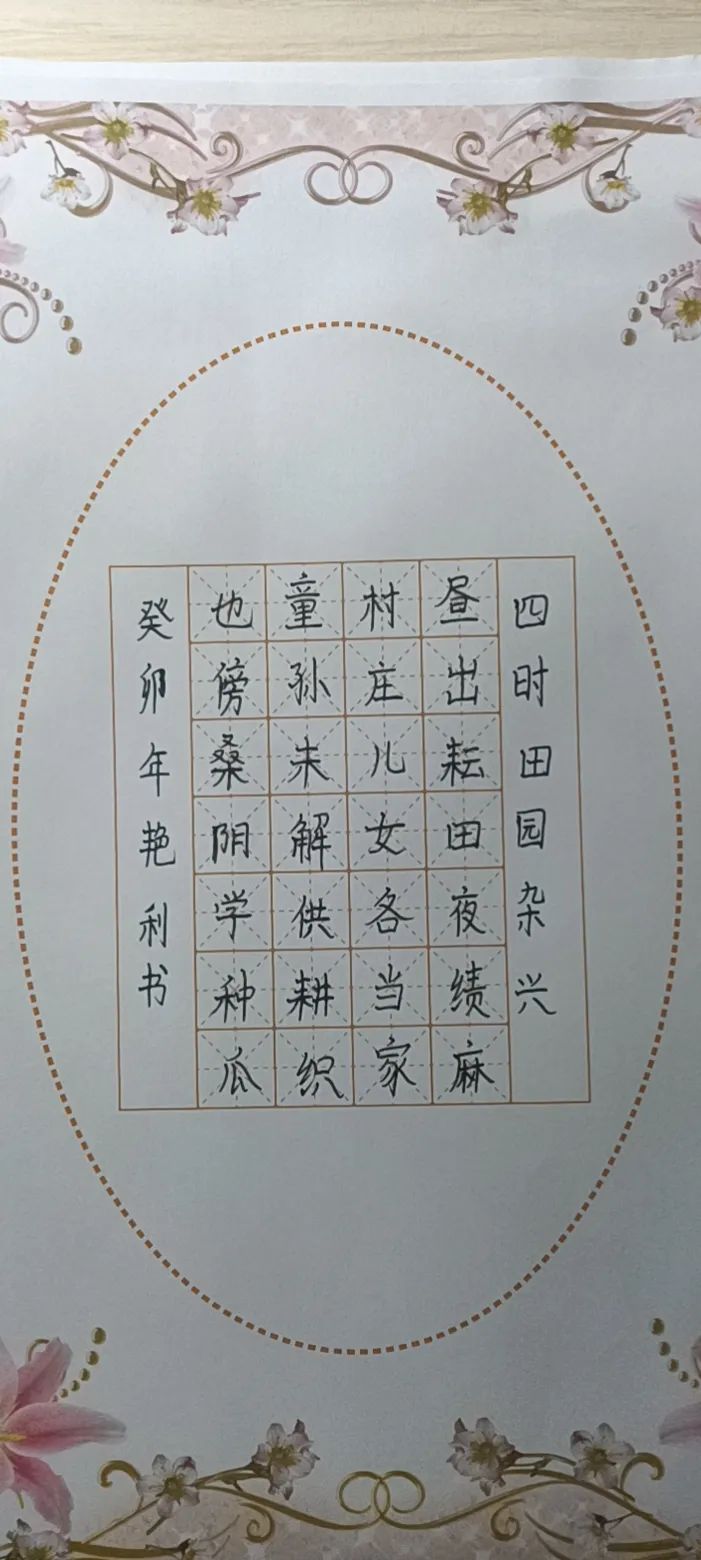 四时田园杂兴
昼出耘田夜绩麻
村庄儿女各当家
童孙未解供耕织
也傍桑阴学种瓜
癸卯年艳利书